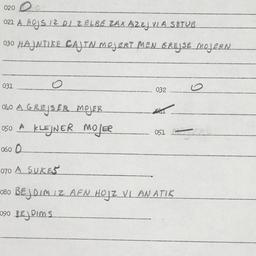 020 O
021 A HOJS IZ DI ZELBE ZAX AZEJ VI A SBTUB
030 HAJNTIKE CAJTN MOJERT MEN GREJSE MOJERN
031 O 032 O
040 A GREJSER MOJER
050 A KLEJNER MOJER 051 —
060 O
070 A SUKES
080 BEJDIM IZ AFN HOJZ VI AN ATIK
090 BEJDIMS